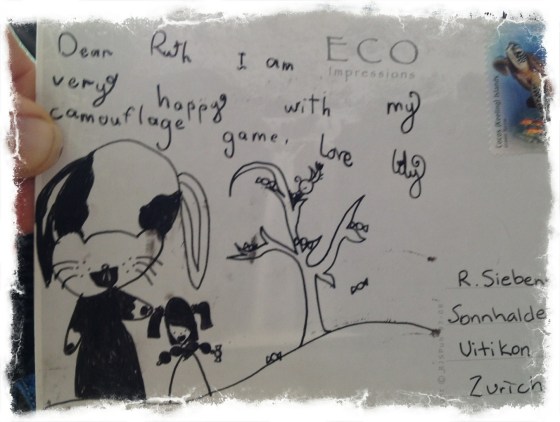 Dear Ruth I am
very happy with my
camouflage game.
love Idy
ECO
impressions
Cocos (Keeling) Islands
R. Sieben
Sonnhalde
Uitikon
Zurich